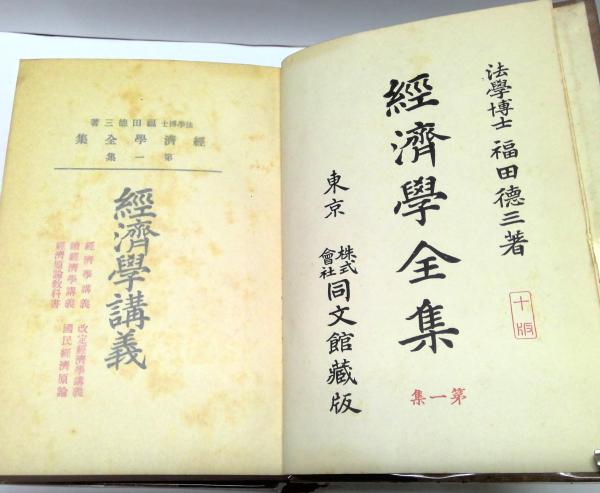 法學博士 福田德三著
經濟學全集
第一集
東京
株式會社 同文館藏版
十版
法學博士 福田德三著
經濟學全集
第一集
經濟學講義
經濟學講義
續經濟學講義
經濟原論教科書
改定經濟學講義
國民經濟原論